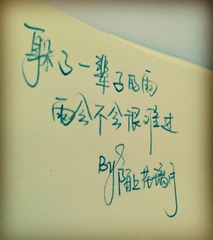 躲了一辈子的雨
雨会不会很难过
By 陌上花满